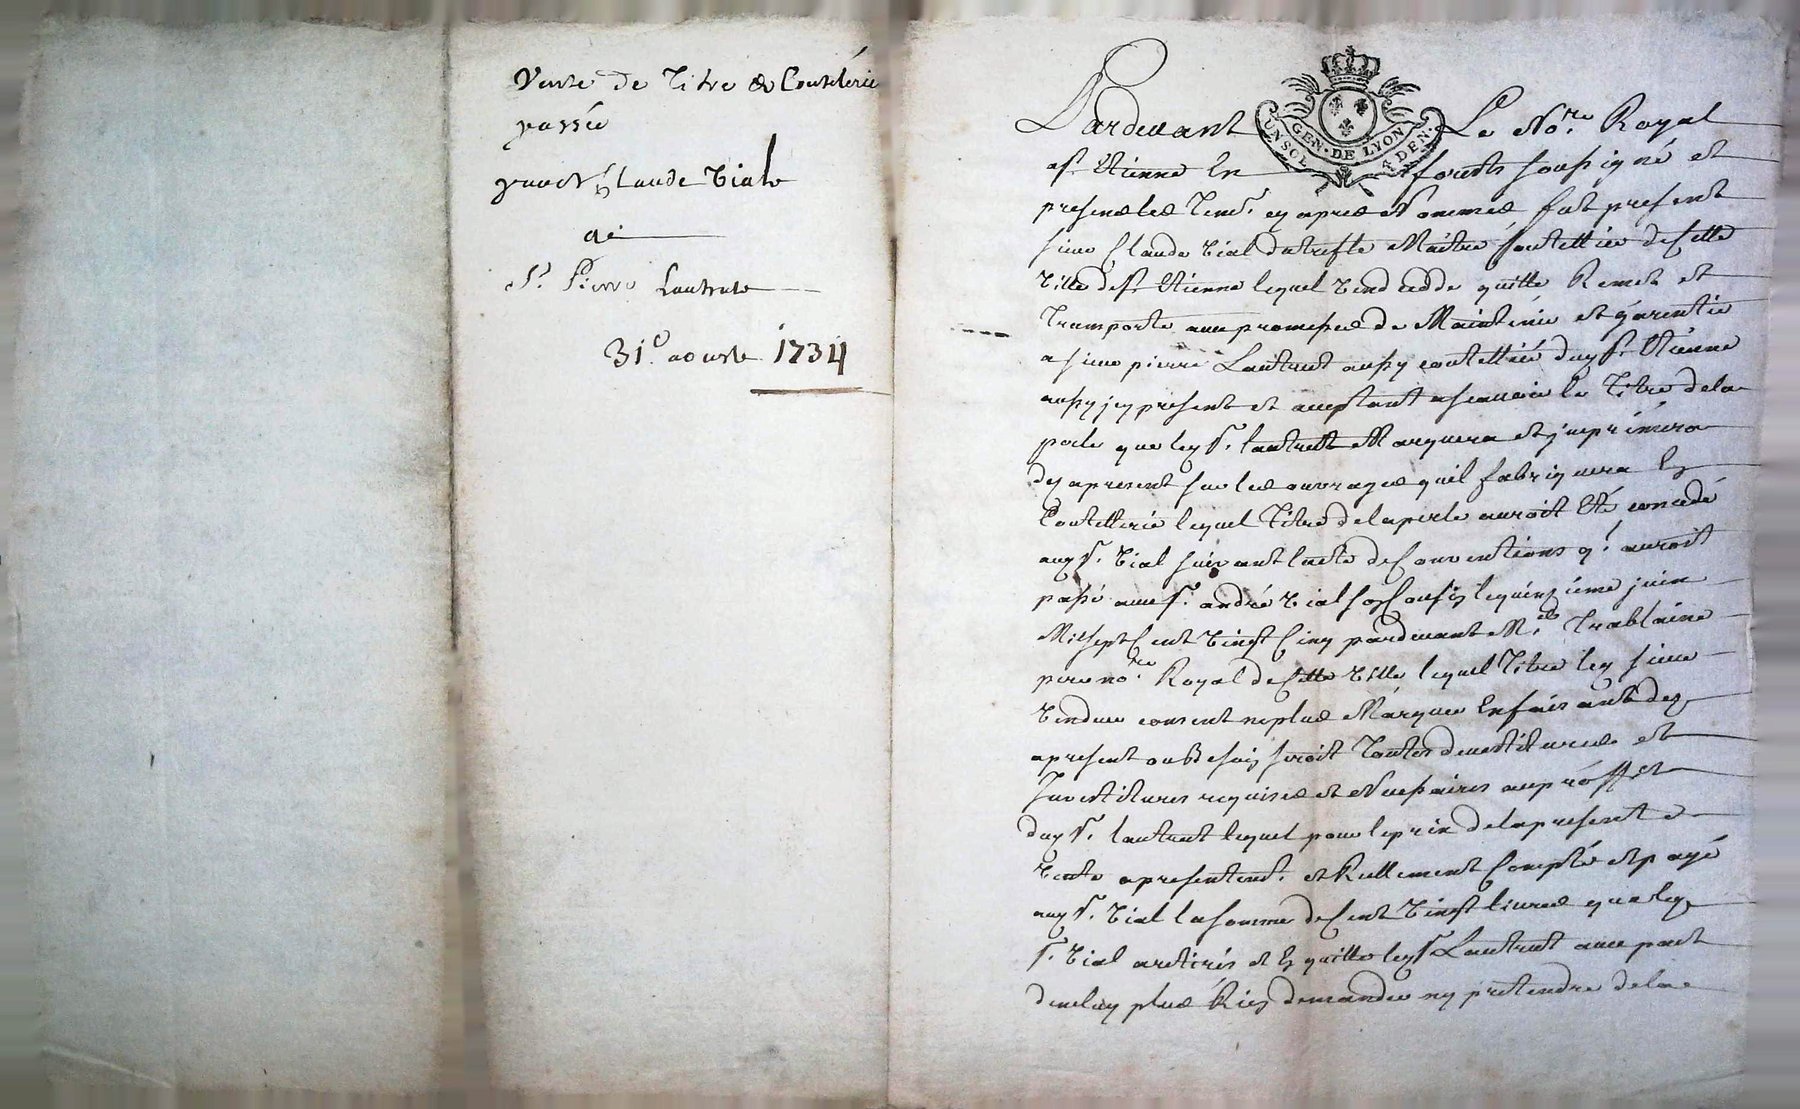 Vente de Titre de Coutelerie
passée
par Sr Claude Vial
a
Sr. Pierre Lautrut
31e. aoust 1734
GEN. DE LYON
UN SOL 4 DEN.
Pardevant Le Nore. Royal
a St. Etienne En forests soussigné et
presens les Tem. cy apres Nommes fut present
sieur Claude Vial Maitre Coutellier de Cette
Ville de St. Etienne lequel Vend cedde quitte Remet et
Transporte avec promesses de Maintenir et garentir
a sieur pierre Lautrut aussy coutellier dud St. Etienne
aussy icy present et acceptant ascavoir le Titre de la
perle que led Sr. lautrut Marquera et jmprimera
des apresent sur les ouvrages quil fabriquera En
Coutellerie lequel Titre de la perle auroit Eté concedé
aud Sr. Vial suivant l'acte de Conventions q'. auroit
passé avec Sr. andré Vial son Cousin le quinzième juin
Mil sept Cent Vingt Cinq pardevant Me. Trablaine
pere nore. Royal de Cette Ville lequel Titre led sieur
Vendeur consent ne plus Marquer En faisant des
apresent ou Besoin seroit Toutes devestitures et
Investitures requises et Necessaires au proffit
dud Sr. lautrut lequel pour le prix de la presente
Vente a presentemt. et Rellement Compté et payé
aud Sr. Vial la somme de Cent Vingt livres que led
Sr. Vial a retirés et En quitte led Sr Lautrut avec pact
de n'en luy plus Rien demander ny pretendre de la